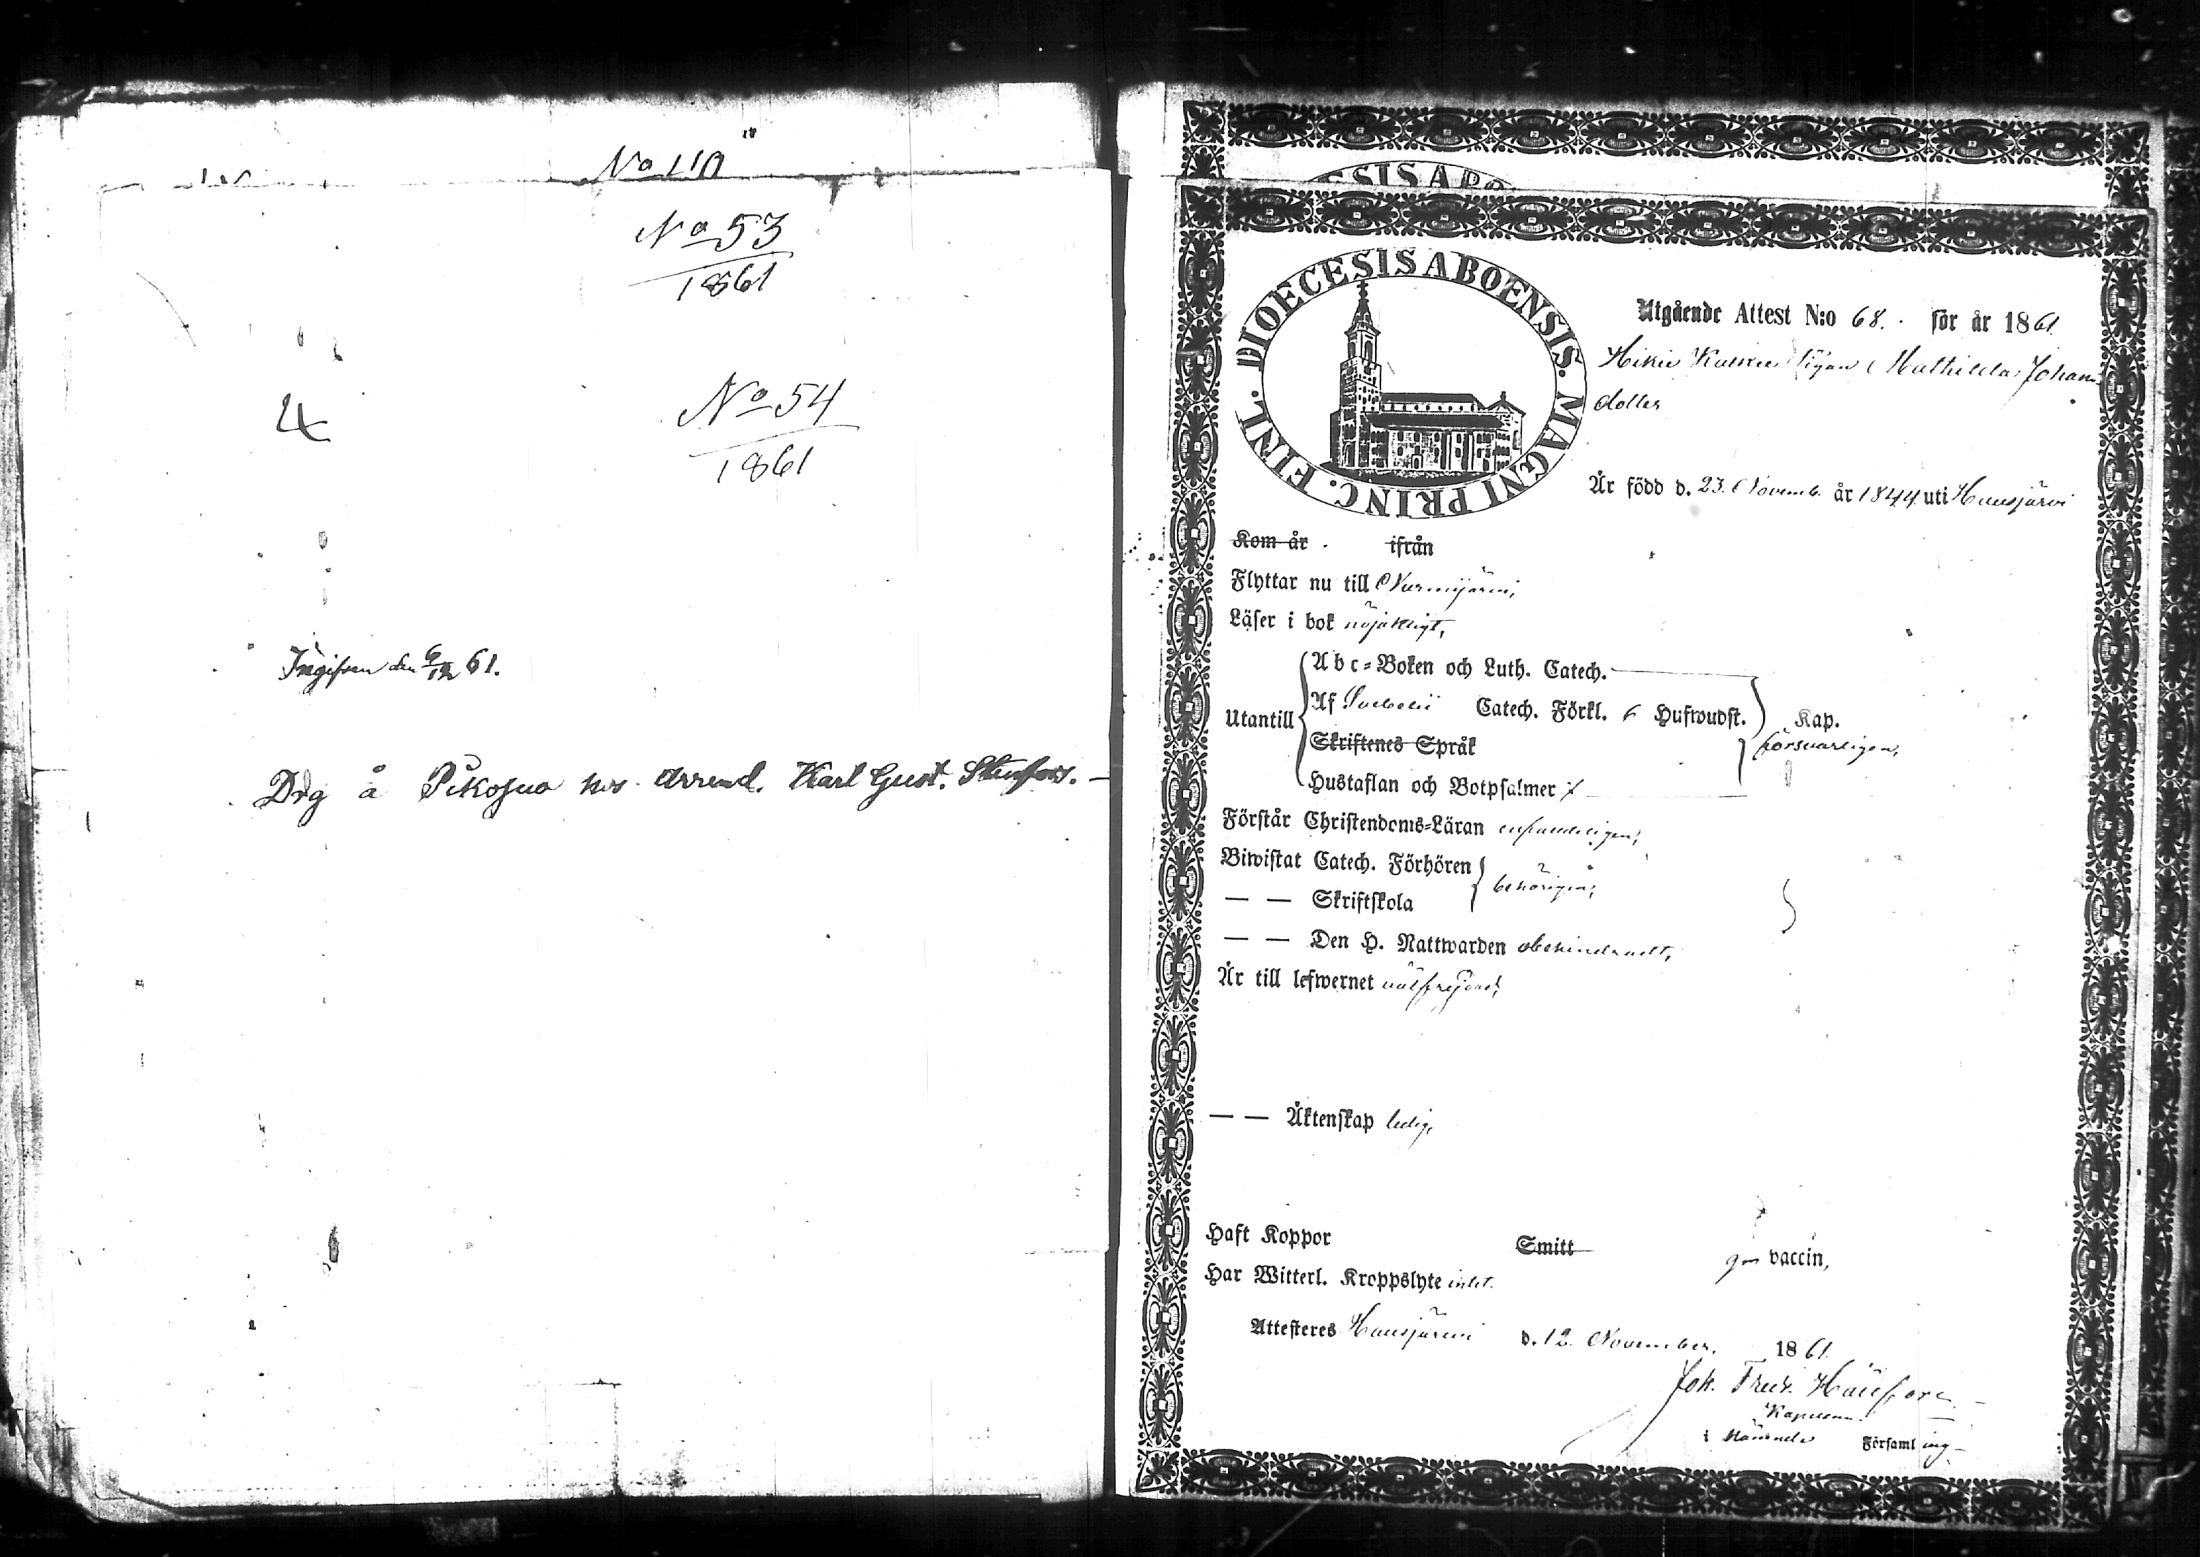 No 110
No 53
1861
4
No 54
1861
Ingifven den 6/12 61.
Drg å Pikosuo hos Arrend. Karl Gust. Stenfors.
DIOECESIS ABOENSIS. MAGNI PRINC. FINL.
Utgående Attest N:o 68. för år 1861
Hikiä Pigan Mathilda Johans
dotter
Är född d. 23. Novemb. år 1844 uti Hausjärvi
Kom år ifrån
Flyttar nu till Nurmijärvi,
Läser i bok nöjaktigt,
Abc-Boken och Luth. Catech.
Utantill Af Svebelii Catech. Förkl. 6 Hufwudst. Kap.
Skriftenes Språk försvarligen,
Hustaflan och Botpsalmer
Förstår Christendoms-Läran enfaldeligen,
Biwistat Catech. Förhören behörigen,
— — Skriftskola
— — Den H. Nattwarden obehindradt,
Är till lefwernet välfrejdad,
— — Äktenskap ledig,
Haft Koppor Smitt gm vaccin,
Har Witterl. Kroppslyte intet.
Attesteres Hausjärvi d. 12. November. 1861.
Joh. Fredr.
Kapellan
i nämnde Församling